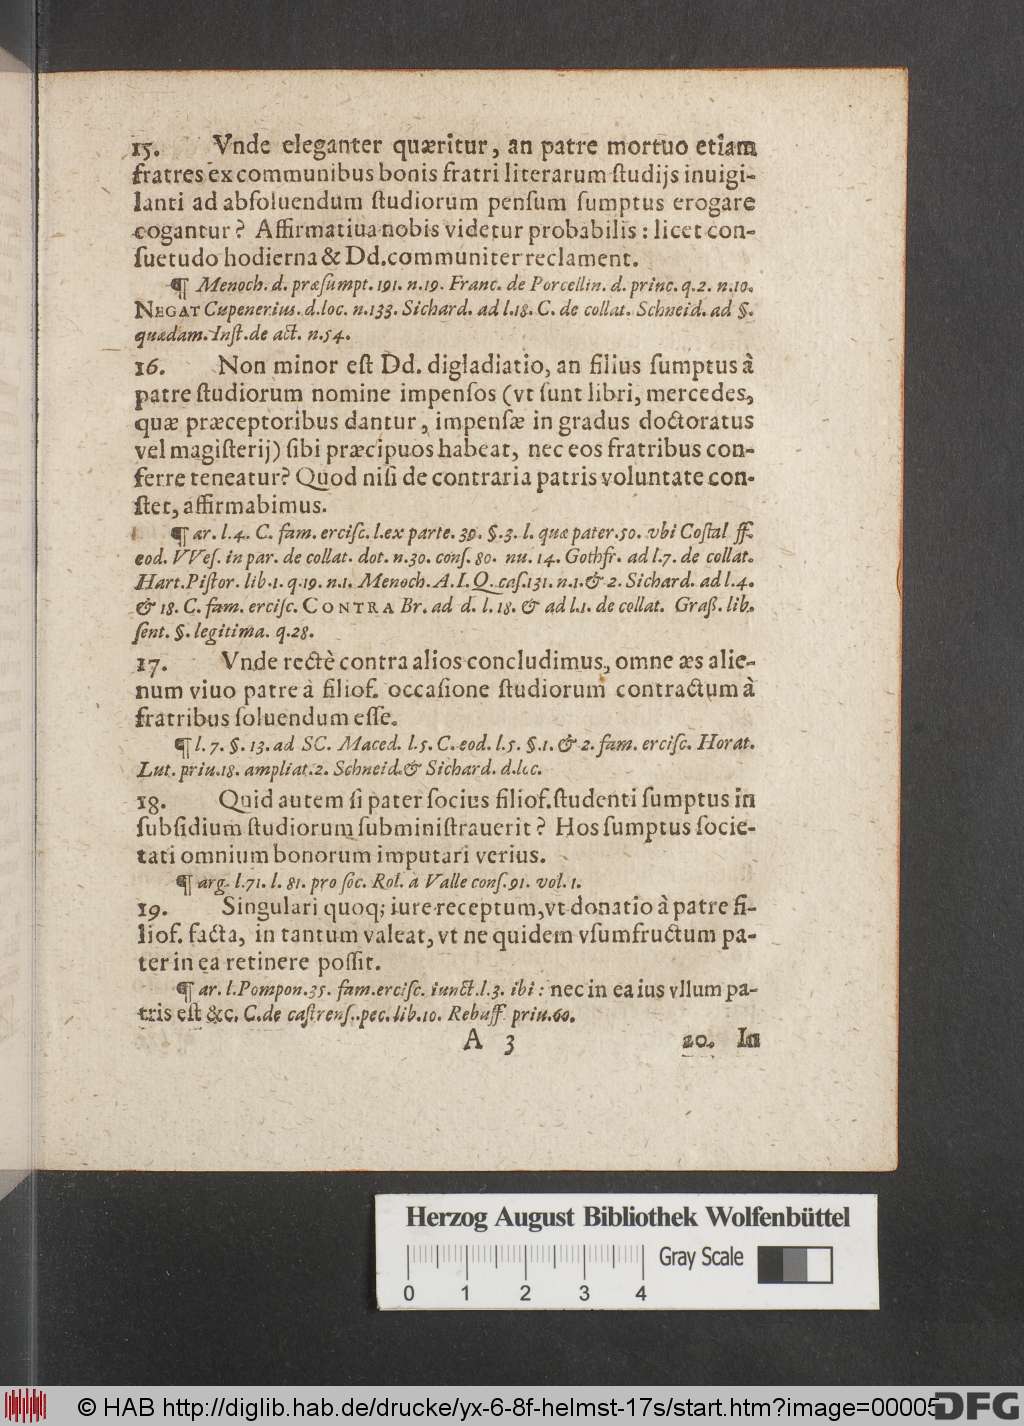 15. Vnde eleganter quæritur, an patre mortuo etiam
fratres ex communibus bonis fratri literarum ſtudijs inuigi-
lanti ad abſoluendum ſtudiorum penſum ſumptus erogare
cogantur? Affirmatiua nobis videtur probabilis: licet con-
ſuetudo hodierna & Dd. communiter reclament.
¶ Menoch. d. præſumpt. 191. n.19. Franc. de Porcellin. d. princ. q.2. n.10.
NEGAT Cupenerius. d.loc. n.133. Sichard. ad l.18. C. de collat. Schneid. ad §.
quædam. Inſt. de act. n.54.
16. Non minor eſt Dd. digladiatio, an filius ſumptus à
patre ſtudiorum nomine impenſos (vt ſunt libri, mercedes,
quæ præceptoribus dantur, impenſæ in gradus doctoratus
vel magiſterij) ſibi præcipuos habeat, nec eos fratribus con-
ferre teneatur? Quod niſi de contraria patris voluntate con-
ſtet, affirmabimus.
¶ ar. l.4. C. fam. erciſc. l.ex parte. 39. §.3. l. quæ pater.50. vbi Coſtal ff.
eod. VVeſ. in par. de collat. dot. n.30. conſ. 80. nu. 14. Gothfr. ad l.7. de collat.
Hart. Piſtor. lib.1. q.19. n.1. Menoch. A. I. Q. caſ.131. n.1. & 2. Sichard. ad l.4.
& 18. C. fam. erciſc. CONTRA Br. ad d. l. 18. & ad l.1. de collat. Graß. lib.
ſent. §. legitima. q.28.
17. Vnde rectè contra alios concludimus, omne æs alie-
num viuo patre à filiof. occaſione ſtudiorum contractum à
fratribus ſoluendum eſſe.
¶ l. 7. §. 13. ad SC. Maced. l.5. C. eod. l.5. §.1. & 2. fam. erciſc. Horat.
Lut. priu.18. ampliat.2. Schneid. & Sichard. d.loc.
18. Quid autem ſi pater ſocius filiof. ſtudenti ſumptus in
ſubſidium ſtudiorum ſubminiſtrauerit? Hos ſumptus ſocie-
tati omnium bonorum imputari verius.
¶ arg. l.71. l. 81. pro ſoc. Rol. à Valle conſ.91. vol. 1.
19. Singulari quoq; iure receptum, vt donatio à patre fi-
liof. facta, in tantum valeat, vt ne quidem vſumfructum pa-
ter in ea retinere poſſit.
¶ ar. l. Pompon.35. fam. erciſc. iunct. l.3. ibi: nec in ea ius vllum pa-
tris eſt &c. C. de caſtrenſ. pec. lib.10. Rebuff. priu.60.
A 3 20. In
Herzog August Bibliothek Wolfenbüttel
Gray Scale
0 1 2 3 4
© HAB http://diglib.hab.de/drucke/yx-6-8f-helmst-17s/start.htm?image=00005
DFG